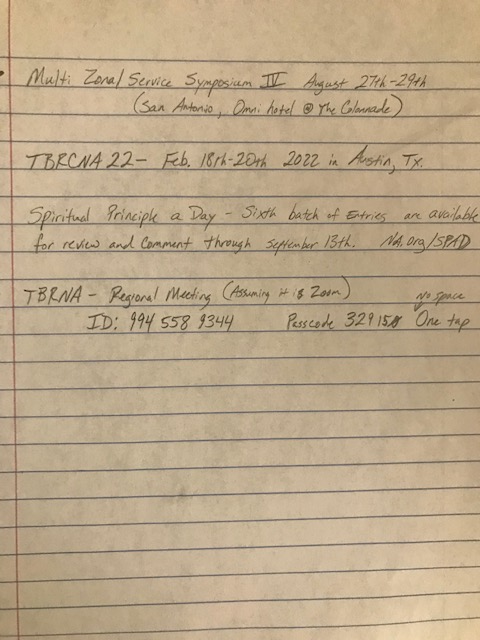 Multi Zonal Service Symposium IV August 27th-29th
(San Antonio, Omni hotel @ The Colonnade)
TBRCNA 22- Feb. 18th-20th 2022 in Austin, Tx.
Spiritual Principle a Day - Sixth batch of Entries are available
for review and Comment through September 13th. NA.org/SPAD
TBRNA - Regional Meeting (Assuming it is Zoom)
No space
ID: 994 558 9344 Passcode 32915 One tap